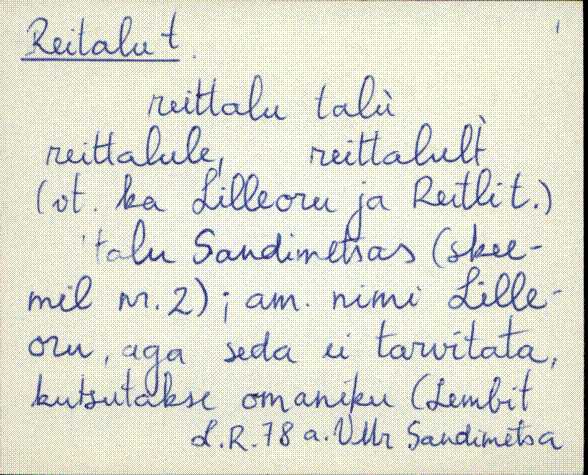 Reitalu t.
reittalu talù
reittalule, reittalult
(vt. ka Lilleoru ja Reitli t.)
talu Sandimetsas (skee-
mil nr. 2); am. nimi Lille-
oru, aga seda ei tarvitata,
kutsutakse omaniku (Lembit
L.R. 78 a. VMr Sandimetsa